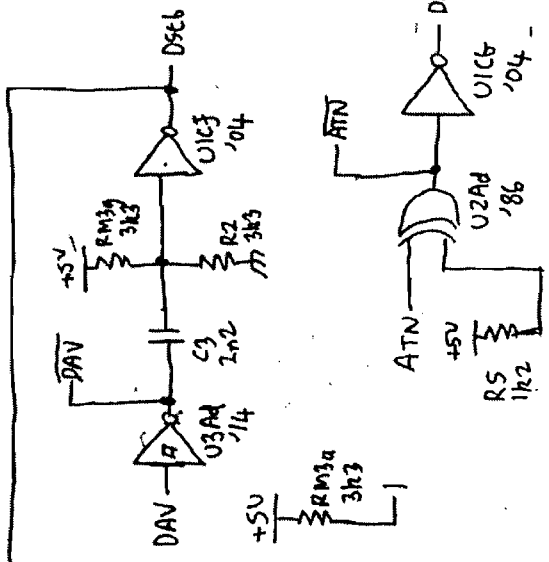 DAV
U3Ad
'14
DAV
C3
2n2
+5V
RM3g
3k3
R2
3k3
U1Cf
'04
Dstb
+5V
RM3a
3k3
1
ATN
+5V
R5
1k2
U2Ad
'86
ATN
U1CG
'04
D